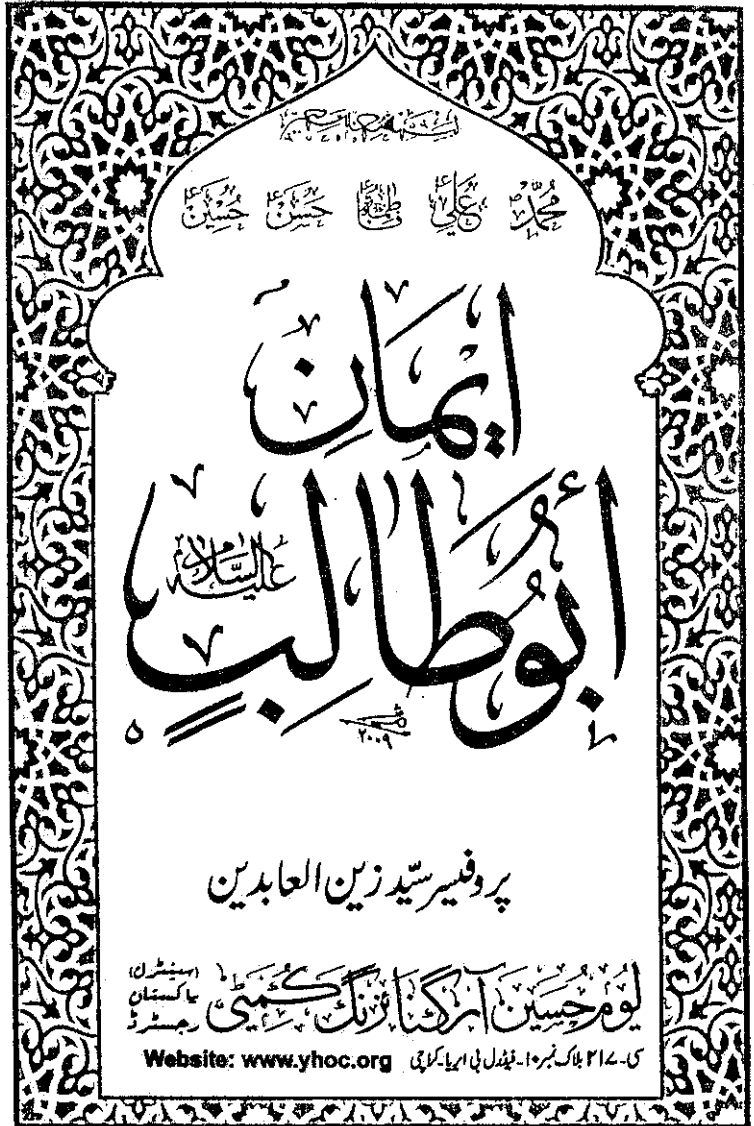 بسمہ سبحانہ
محمدؐ علیؑ فاطمہؑ حسنؑ حسینؑ
ایمانِ
أبُوطالِبٍ
علیہ السّلام
۲۰۰۹
پروفیسر سیّد زین العابدین
یومِ حُسین آرگنائزنگ کمیٹی (سینٹرل) پاکستان رجسٹرڈ
سی۔۲۱۷ بلاک نمبر۱۰۔فیڈرل بی ایریا۔کراچی Website: www.yhoc.org